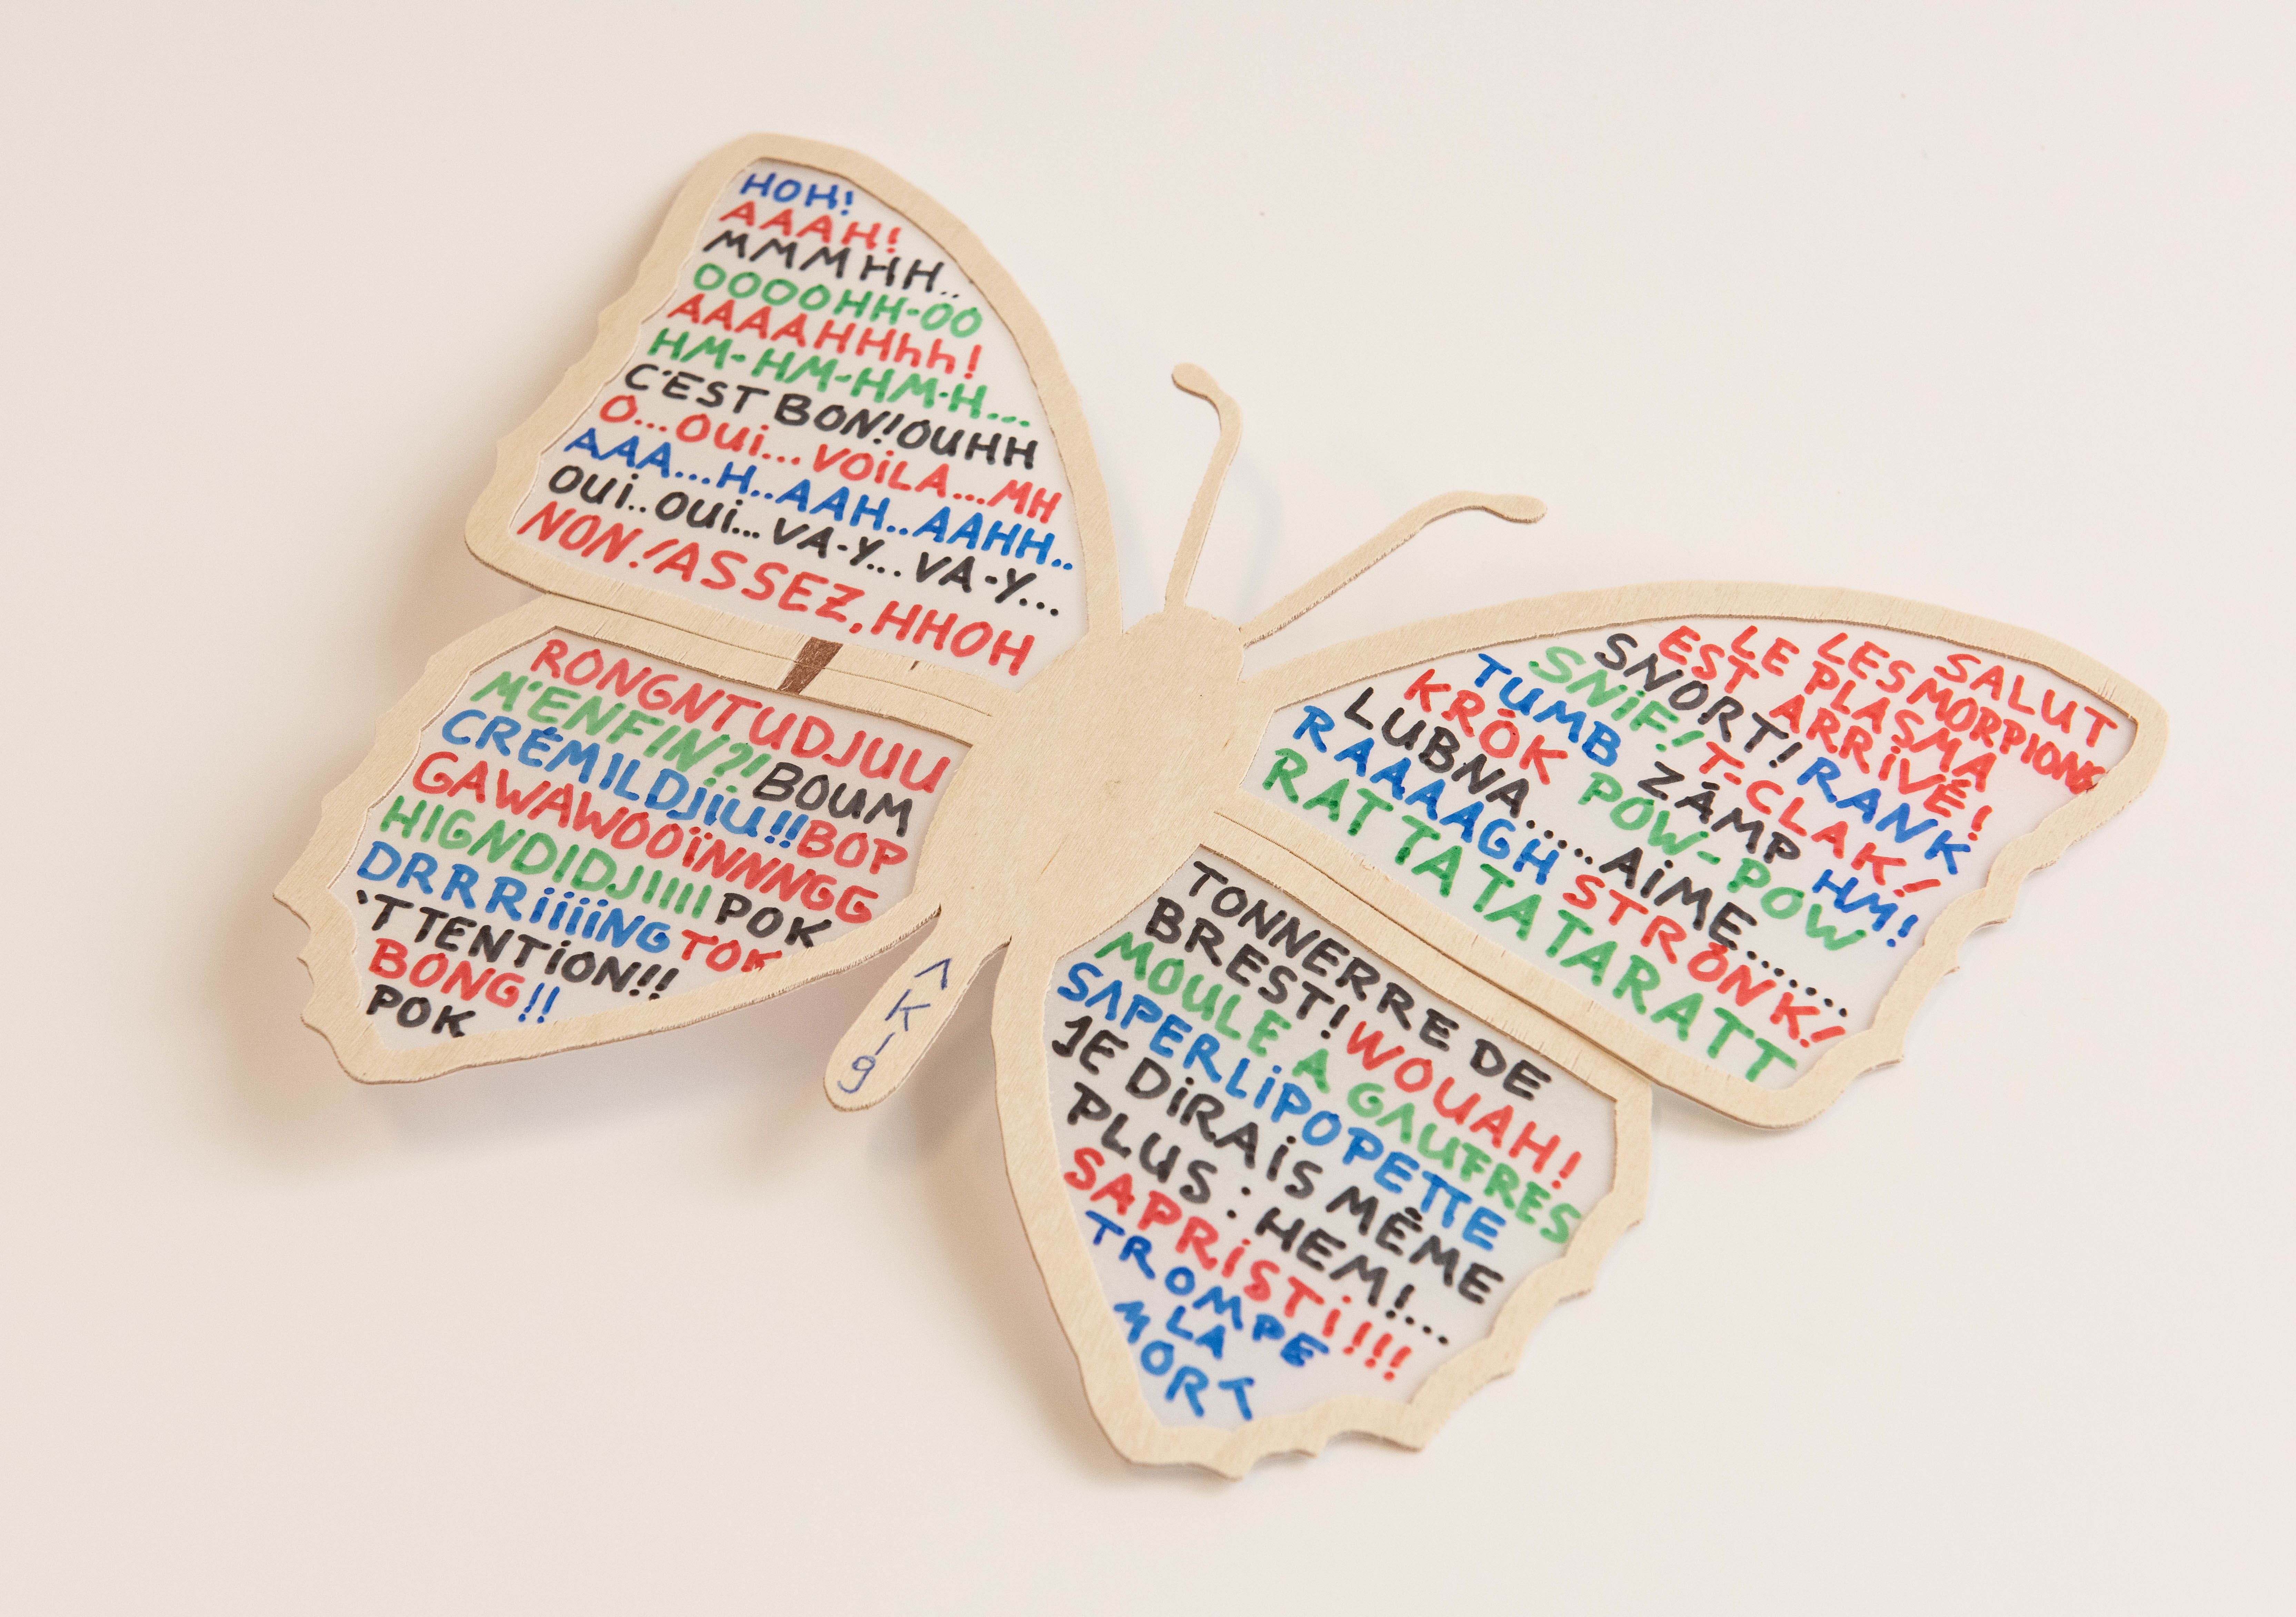 HOH!
AAAH!
MMMHH..
OOOOHH-OO
AAAAHHhh!
HM-HM-HM-H...
C'EST BON!OUHH
O...OUi...VOiLA...MH
AAA...H..AAH..AAHH..
OUi..OUi...VA-Y...VA-Y...
NON!ASSEZ,HHOH
RONGNTUDJUU
M'ENFIN?!BOUM
CRÉMILDJiU!!BOP
GAWAWOOïNNNGG
HIGNDIDJIIII POK
DRRRiiiiNG TOK
'TTENTiON!!
BONG!!
POK
SALUT
LES MORPIONS
LE PLASMA
EST ARRiVÉ!
SNORT! RANK
SNiF! T-CLAK!
TUMB ZÁMP HM!
KRÔK POW-POW
LUBNA..... AiME......
RAAAAGH STRÔNK!
RATTATATATARATT
TONNERRE DE
BREST! WOUAH!
MOULE A GAUFRES
SAPERLiPOPETTE
JE DiRAiS MÊME
PLUS : HEM!...
SAPRiSTi!!!
TROMPE
LA
MORT